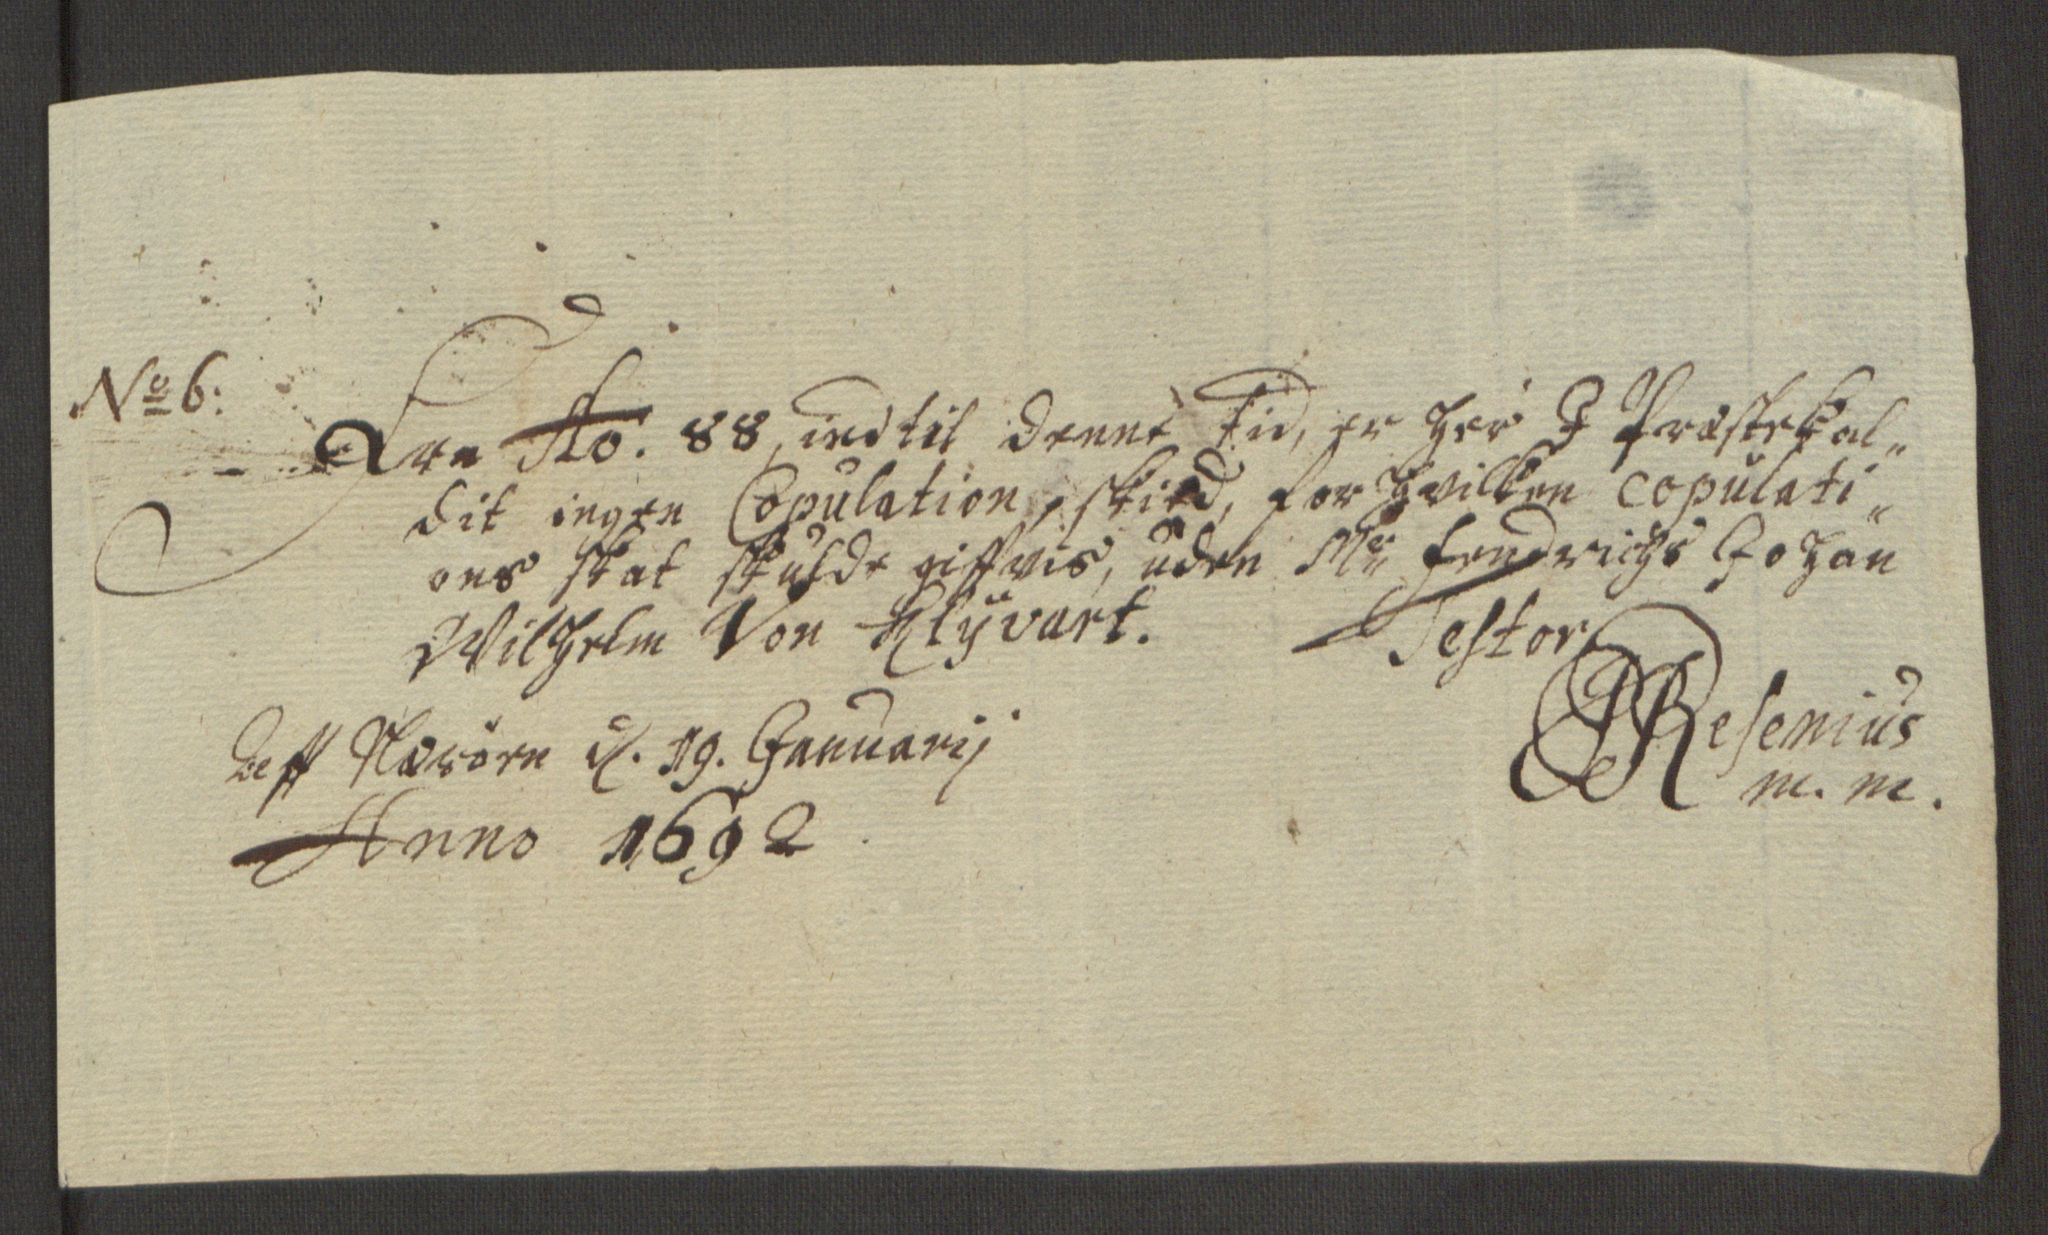 No 6:
Fra Ao. 88, indtil denne Tid, er her J Præstekal„
dit ingen Copulation, skied, for hvilken copulati„
ons skat skulde giffvis, uden Mr fendrichs Johan
Wilhelm Von Klyvart. Testor
Resenius
Aff Næsørn d. 19. Januarij
m. m.
Anno 1692